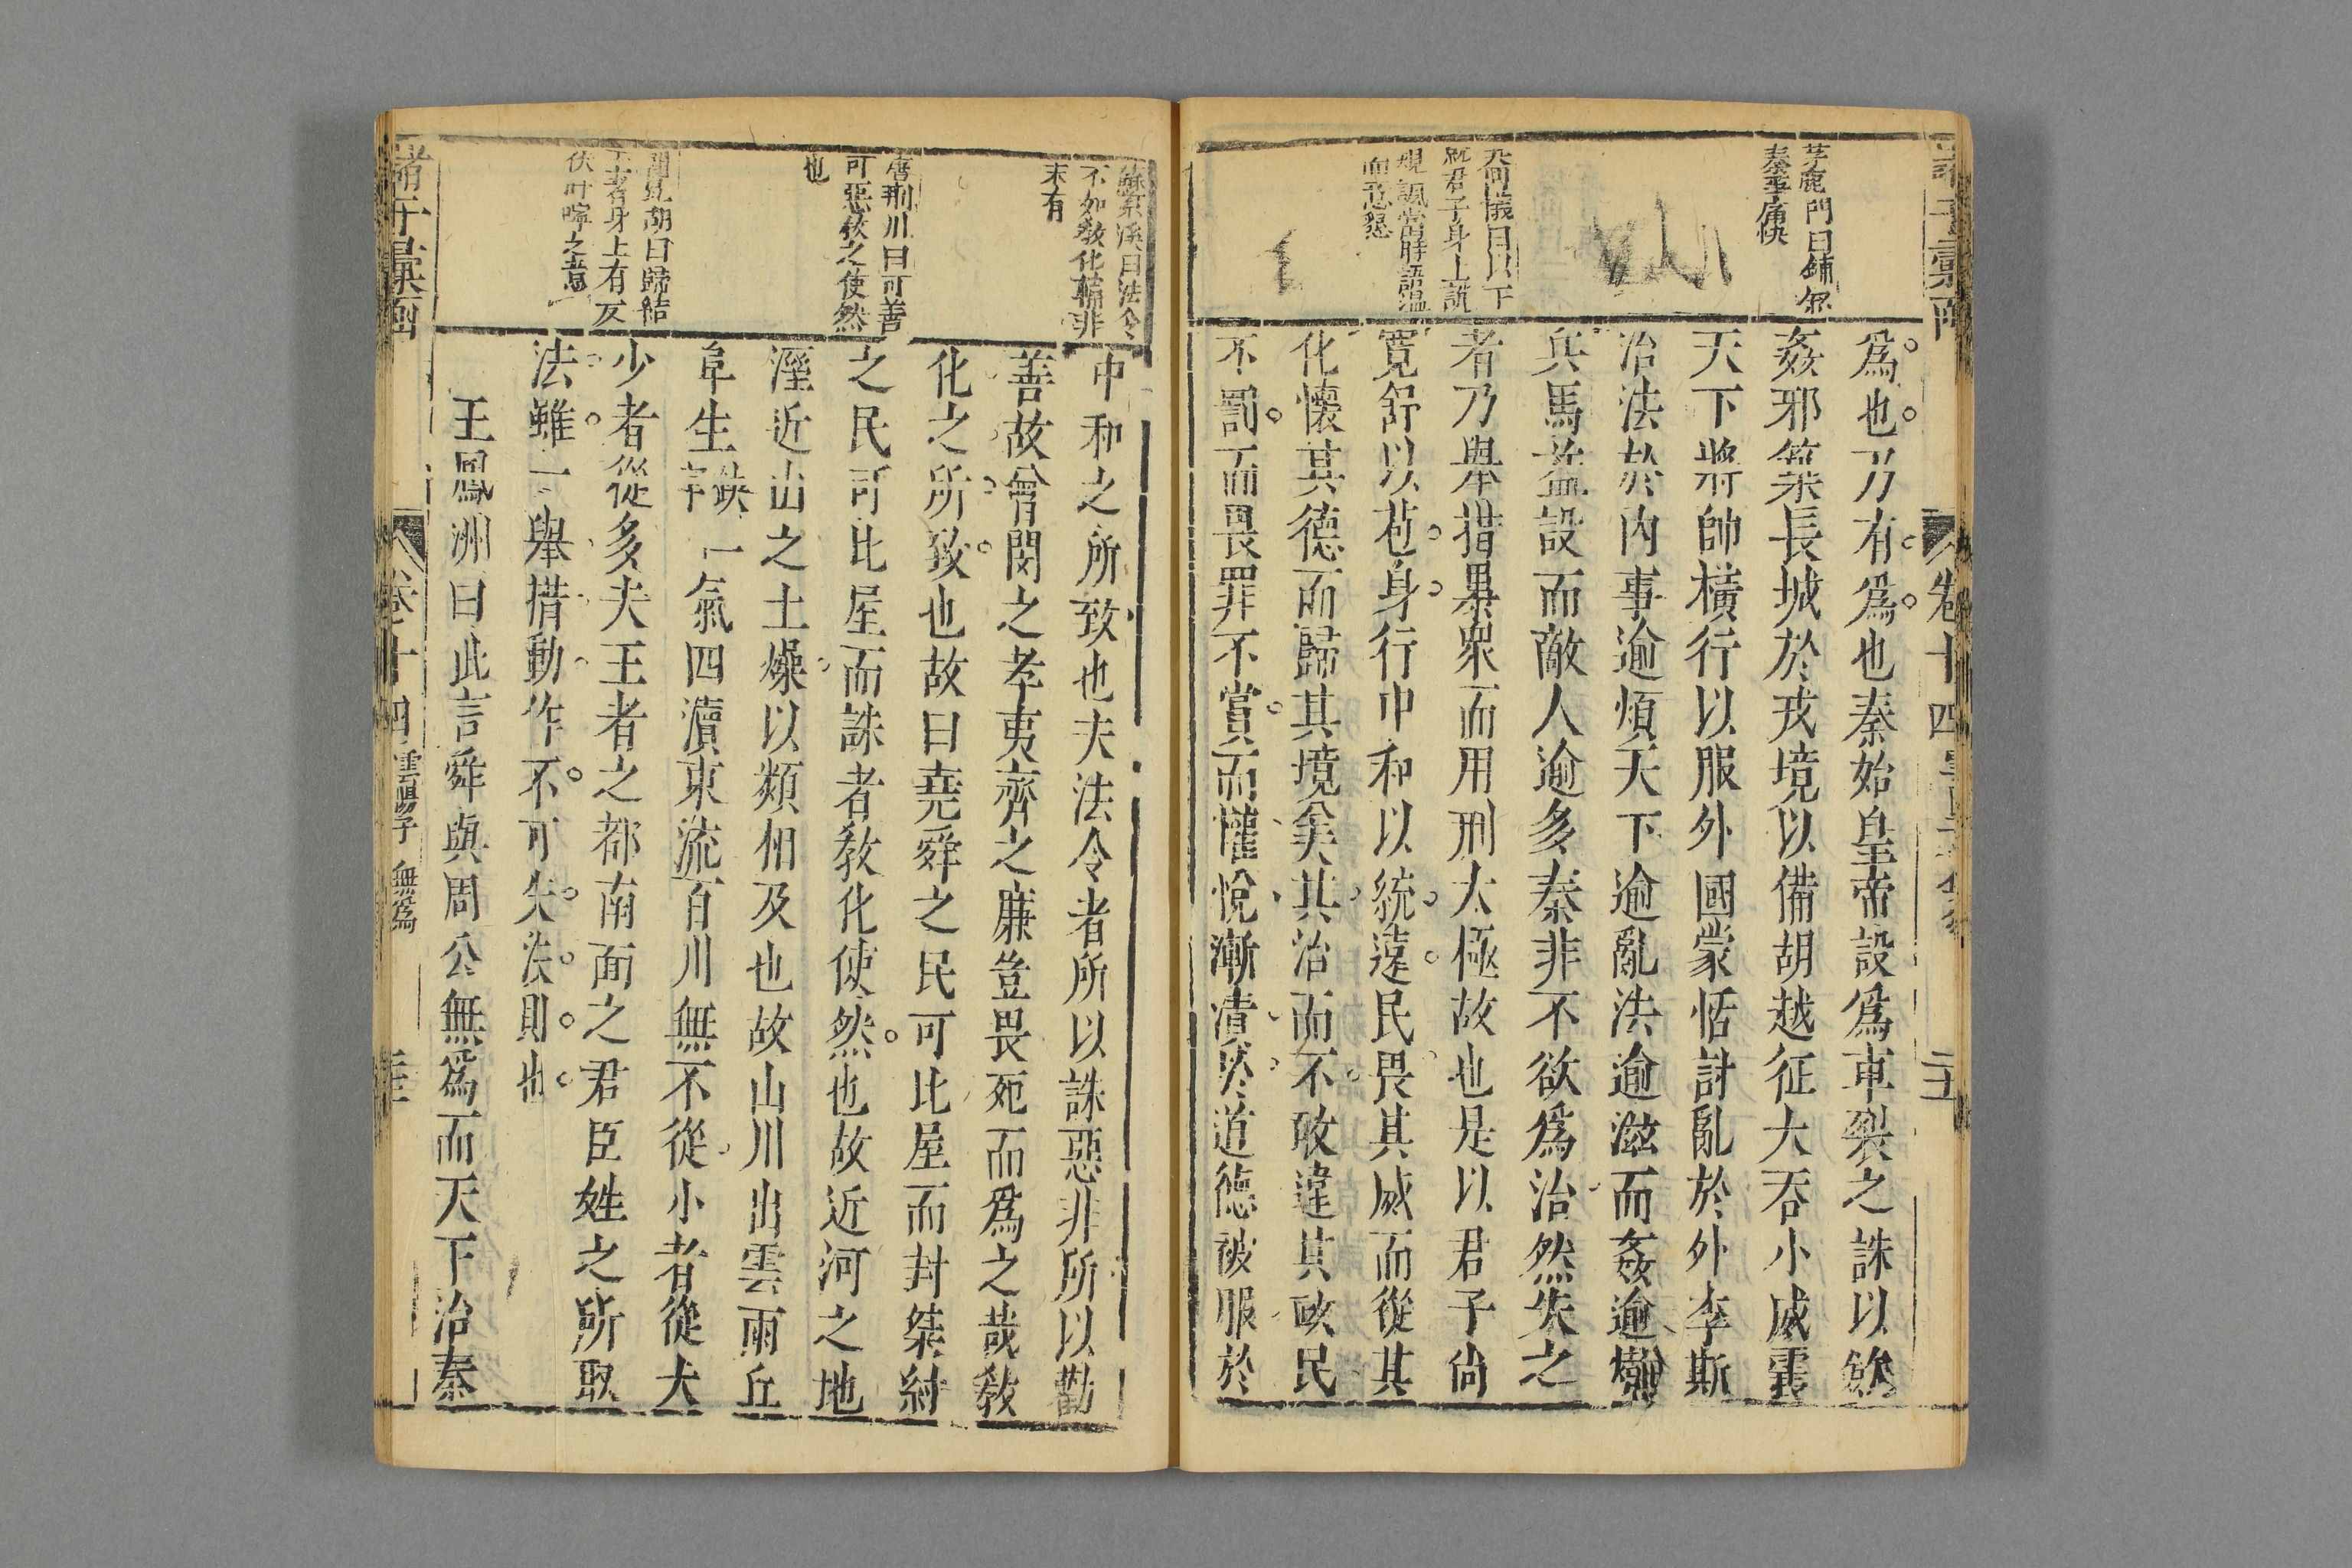 爲也乃有爲也秦始皇帝設爲車裂之誅以斂
姦邪築長城於戎境以備胡越征大吞小威震
天下將帥横行以服外國蒙恬討亂於外李斯
治法於内事逾煩天下逾亂法逾滋而姦逾熾
兵馬益設而敵人逾多秦非不欲爲治然失之
者乃舉措暴衆而用刑太極故也是以君子尚
寬舒以苞身行中和以統遠民畏其威而從其
化懷其德而歸其境美其治而不敢違其政民
不罰而畏罪不賞而懽悦漸漬於道德被服於
茅鹿門曰鋪叙
秦事痛快
就君子身上説
規諷當時語温
而意懇
卷十四
中和之所致也夫法令者所以誅惡非所以勸
善故曾閔之孝夷齊之廉豈畏死而爲之哉敎
化之所致也故曰堯舜之民可比屋而封桀紂
之民可比屋而誅者敎化使然也故近河之地
溼近山之土燥以類相及也故山川出雲雨丘
阜生缺一字一氣四瀆東流百川無不從小者從大
少者從多夫王者之都南面之君臣姓之所取
法雖一舉措動作不可失法則也
王鳳洲曰此言舜與周公無爲而天下治秦
蘇紫溪曰法令
不如敎化韓非
末有
唐荆川曰可善
可惡敎之使然
也
曰歸結
王者身上有反
伏叮嚀之意
諸子彙函
卷十四
雲陽子 無爲